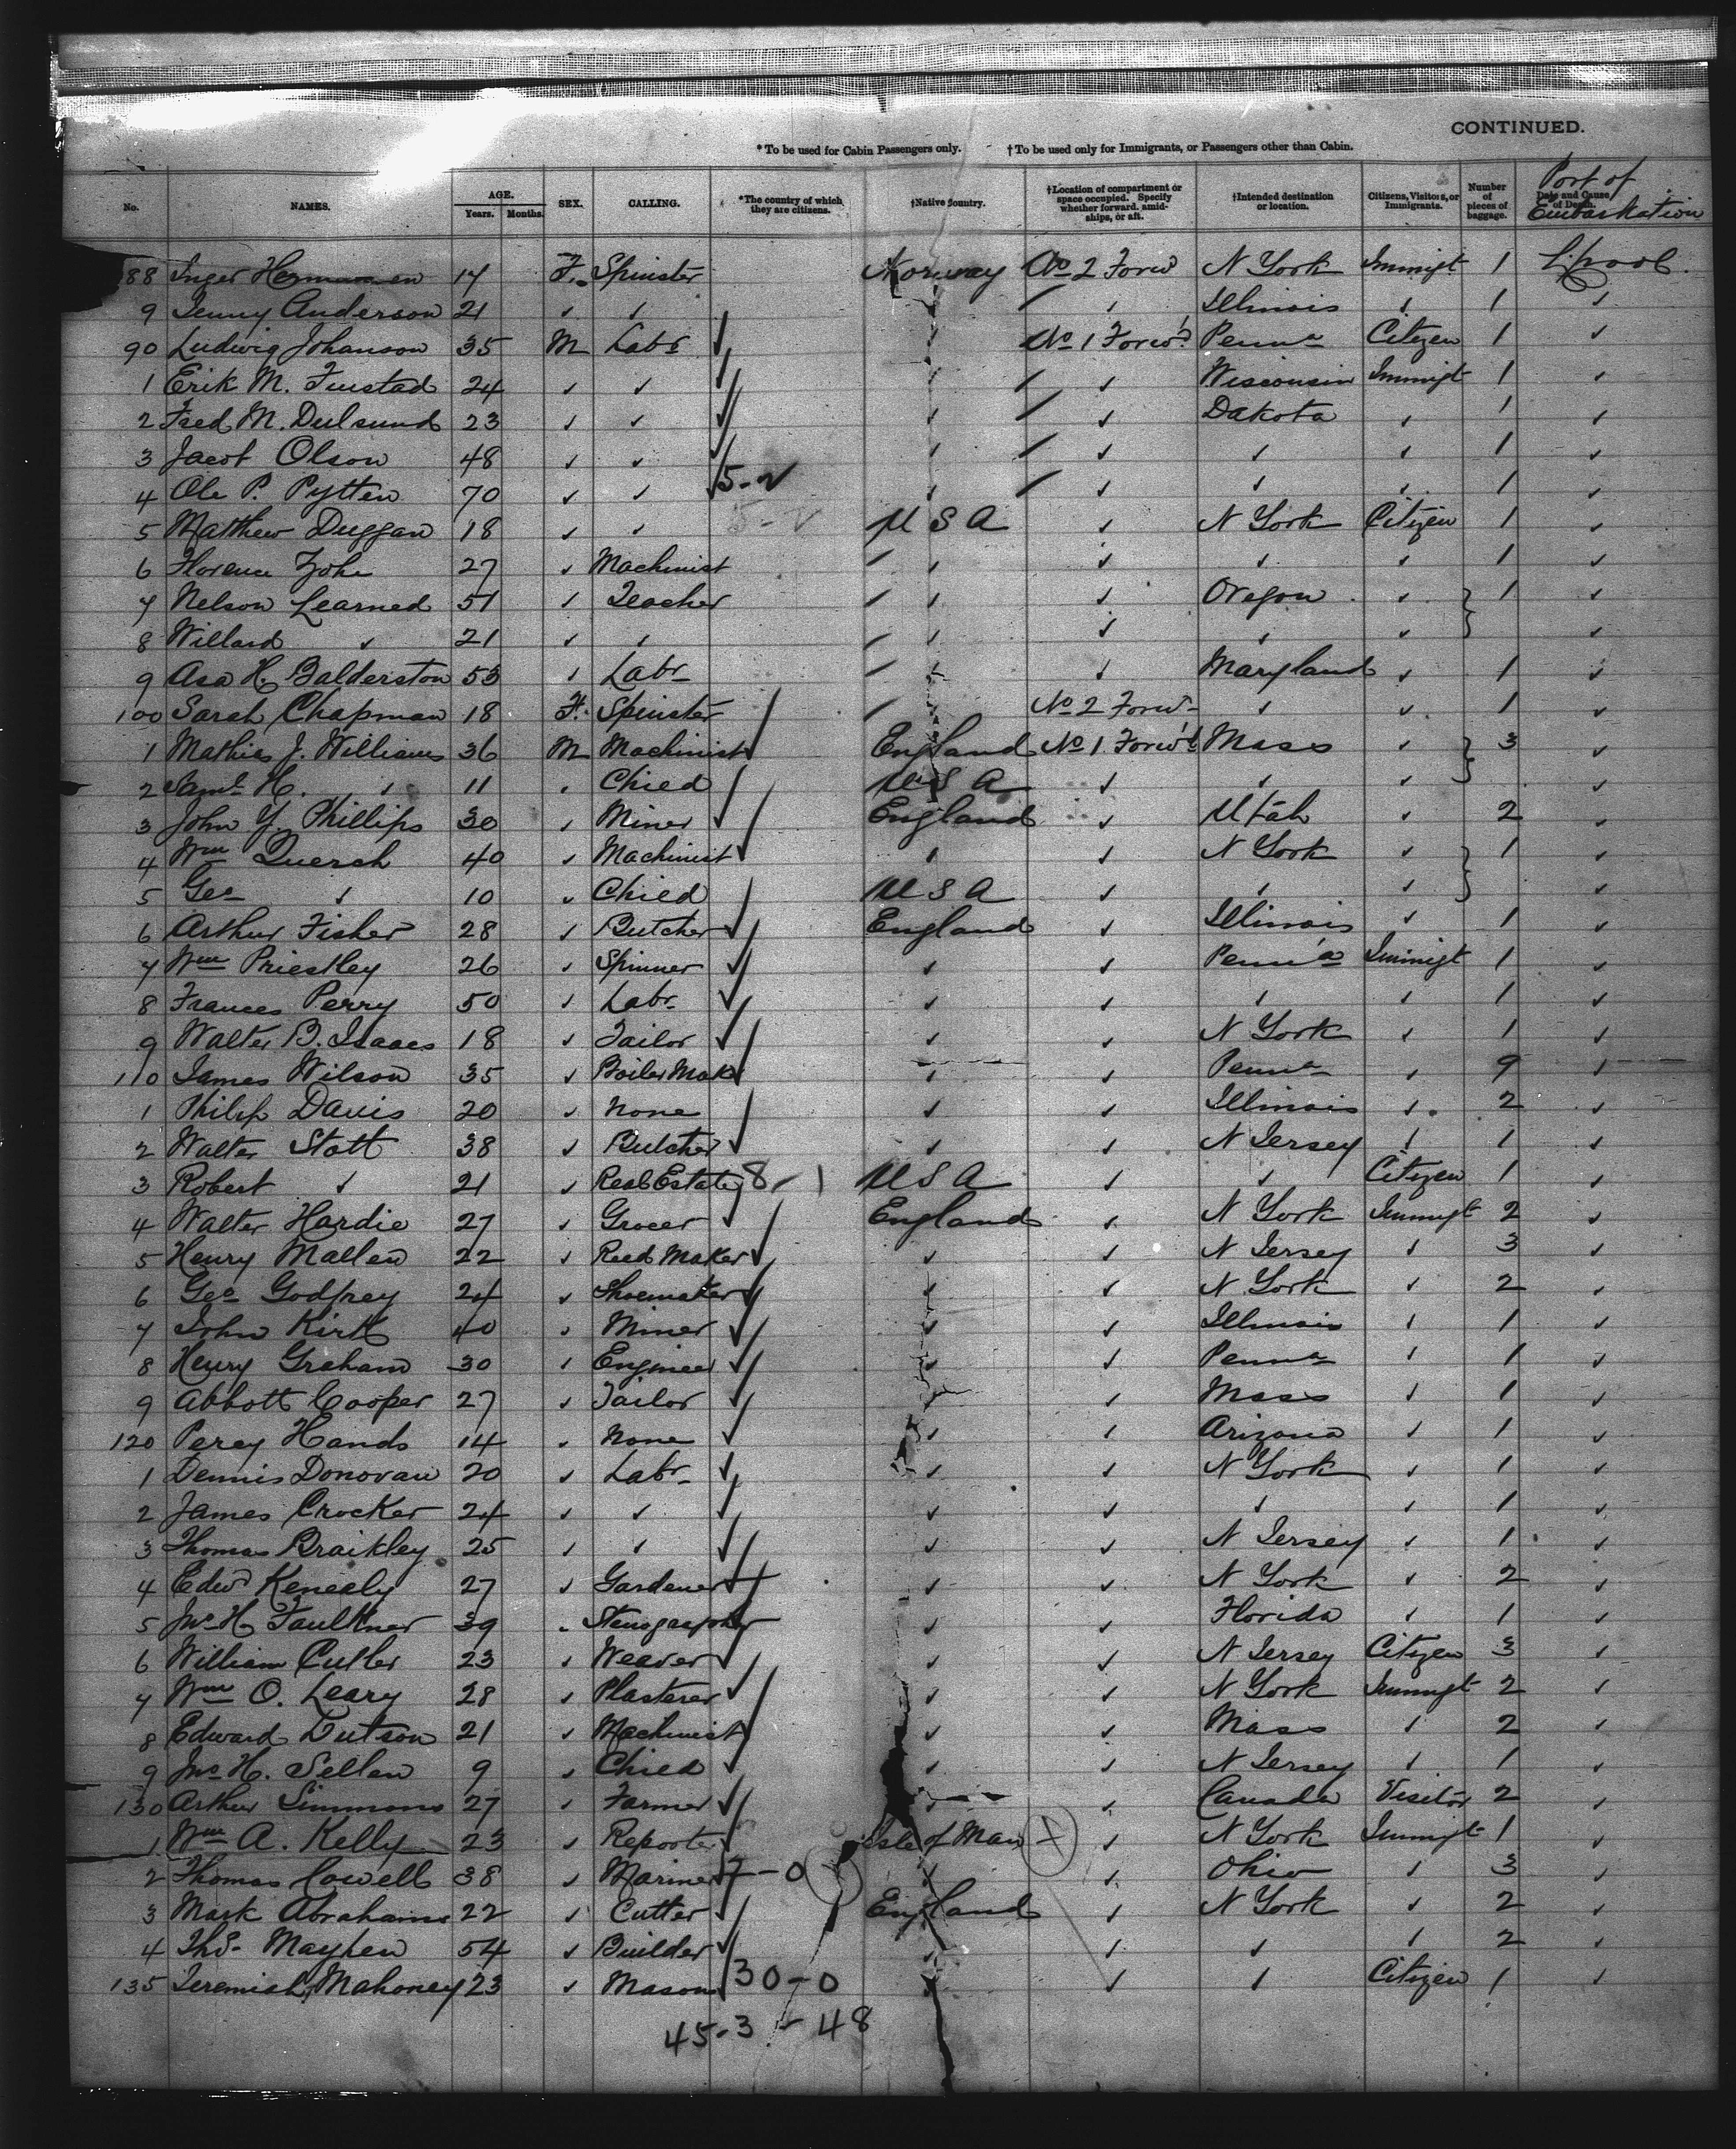 CONTINUED.
* To be used for Cabin Passengers only. † To be used only for Immigrants, or Passengers other than Cabin.
No. NAMES. AGE. Years. Months. SEX. CALLING. *The country of which they are citizens. †Native Country. †Location of compartment or space occupied. Specify whether forward, amidships, or aft. †Intended destination or location. Citizens, Visitors, or Immigrants. Number of pieces of baggage. Date and Cause of Death. Port of Embarkation
88 Inger 17 F. Spinster Norway No 2 Forwd N York Immigt 1 L'pool.
9 Jenny Anderson 21 ✓ ✓ ✓ ✓ Illinois ✓ 1 ✓
90 Ludwig Johanson 35 M Labr ✓ No 1 Forwd Penna Citizen 1 ✓
1 Erik M. Finstad 24 ✓ ✓ ✓ ✓ Wisconsin Immigt 1 ✓
2 Fred M. Dulsund 23 ✓ ✓ ✓ ✓ Dakota ✓ 1 ✓
3 Jacob Olson 48 ✓ ✓ ✓ ✓ ✓ ✓ 1 ✓
4 Ole P. Pytten 70 ✓ ✓ 5-2 ✓ ✓ ✓ ✓ 1 ✓
5 Matthew Duggan 18 ✓ ✓ 5-2 U S A ✓ N York Citizen 1 ✓
6 Florence 27 ✓ Machinist ✓ ✓ ✓ ✓ 1 ✓
7 Nelson Learned 51 ✓ Teacher ✓ ✓ Oregon ✓ 1 ✓
8 Willard ✓ 21 ✓ ✓ ✓ ✓ ✓ ✓ ✓
9 Asa H. Balderston 53 ✓ Labr ✓ ✓ Maryland ✓ 1 ✓
100 Sarah Chapman 18 F. Spinster ✓ No 2 Forwd ✓ ✓ 1 ✓
1 Mathias J. Williams 36 M Machinist England No 1 Forwd Mass ✓ 3 ✓
2 Saml H. ✓ 11 ✓ Child U S A ✓ ✓ ✓ ✓
3 John Y. Phillips 30 ✓ Miner England ✓ Utah ✓ 2 ✓
4 Wm Quersh 40 ✓ Machinist ✓ ✓ N York ✓ 1 ✓
5 Geo ✓ 10 ✓ Child U S A ✓ ✓ ✓ ✓
6 Arthur Fisher 28 ✓ Butcher England ✓ Illinois ✓ 1 ✓
7 Wm Priestley 26 ✓ Spinner ✓ ✓ Penna Immigt 1 ✓
8 Frances Perry 50 ✓ Labr ✓ ✓ ✓ ✓ 1 ✓
9 Walter B. Isaacs 18 ✓ Tailor ✓ ✓ N York ✓ 1 ✓
110 James Wilson 35 ✓ Boiler Makr ✓ ✓ Penna ✓ 9 ✓
1 Philip Davis 20 ✓ None ✓ ✓ Illinois ✓ 2 ✓
2 Walter Stott 38 ✓ Butcher ✓ ✓ N Jersey ✓ 1 ✓
3 Robert ✓ 21 ✓ Real Estate 8-1 U S A ✓ ✓ Citizen 1 ✓
4 Walter Hardie 27 ✓ Grocer England ✓ N York Immigt 2 ✓
5 Henry Mallen 22 ✓ Reed Maker ✓ ✓ N Jersey ✓ 3 ✓
6 Geo Godfrey 24 ✓ Shoemaker ✓ ✓ N York ✓ 2 ✓
7 John Kirk 40 ✓ Miner ✓ ✓ Illinois ✓ 1 ✓
8 Henry Graham 30 ✓ Engineer ✓ ✓ Penna ✓ 1 ✓
9 Abbott Cooper 27 ✓ Tailor ✓ ✓ Mass ✓ 1 ✓
120 Percy Hands 14 ✓ None ✓ ✓ Arizona ✓ 1 ✓
1 Dennis Donovan 20 ✓ Labr ✓ ✓ N York ✓ 1 ✓
2 James Crocker 24 ✓ ✓ ✓ ✓ ✓ ✓ 1 ✓
3 Thomas Braikley 25 ✓ ✓ ✓ ✓ N Jersey ✓ 1 ✓
4 Edwd Kenealy 27 ✓ Gardener ✓ ✓ N York ✓ 2 ✓
5 Jno H. Faulkner 39 ✓ Stenographer ✓ ✓ Florida ✓ 1 ✓
6 William Cutler 23 ✓ Weaver ✓ ✓ N Jersey Citizen 3 ✓
7 Wm O. Leary 28 ✓ Plasterer ✓ ✓ N York Immigt 2 ✓
8 Edward Dutson 21 ✓ Machinist ✓ ✓ Mass ✓ 2 ✓
9 Jno H. Sellen 9 ✓ Child ✓ ✓ N Jersey ✓ 1 ✓
130 Arthur Simmons 27 ✓ Farmer ✓ ✓ Canada Visitor 2 ✓
1 Wm A. Kelly 23 ✓ Reporter Isle of Man ✓ N York Immigt 1 ✓
2 Thomas Cowell 38 ✓ Mariner 7-0 ✓ ✓ Ohio ✓ 3 ✓
3 Mark Abrahams 22 ✓ Cutter England ✓ N York ✓ 2 ✓
4 Thos. Mayhew 54 ✓ Builder ✓ ✓ ✓ ✓ 2 ✓
135 Jeremiah Mahoney 23 ✓ Mason 30-0 ✓ ✓ ✓ Citizen 1 ✓
45-3-48